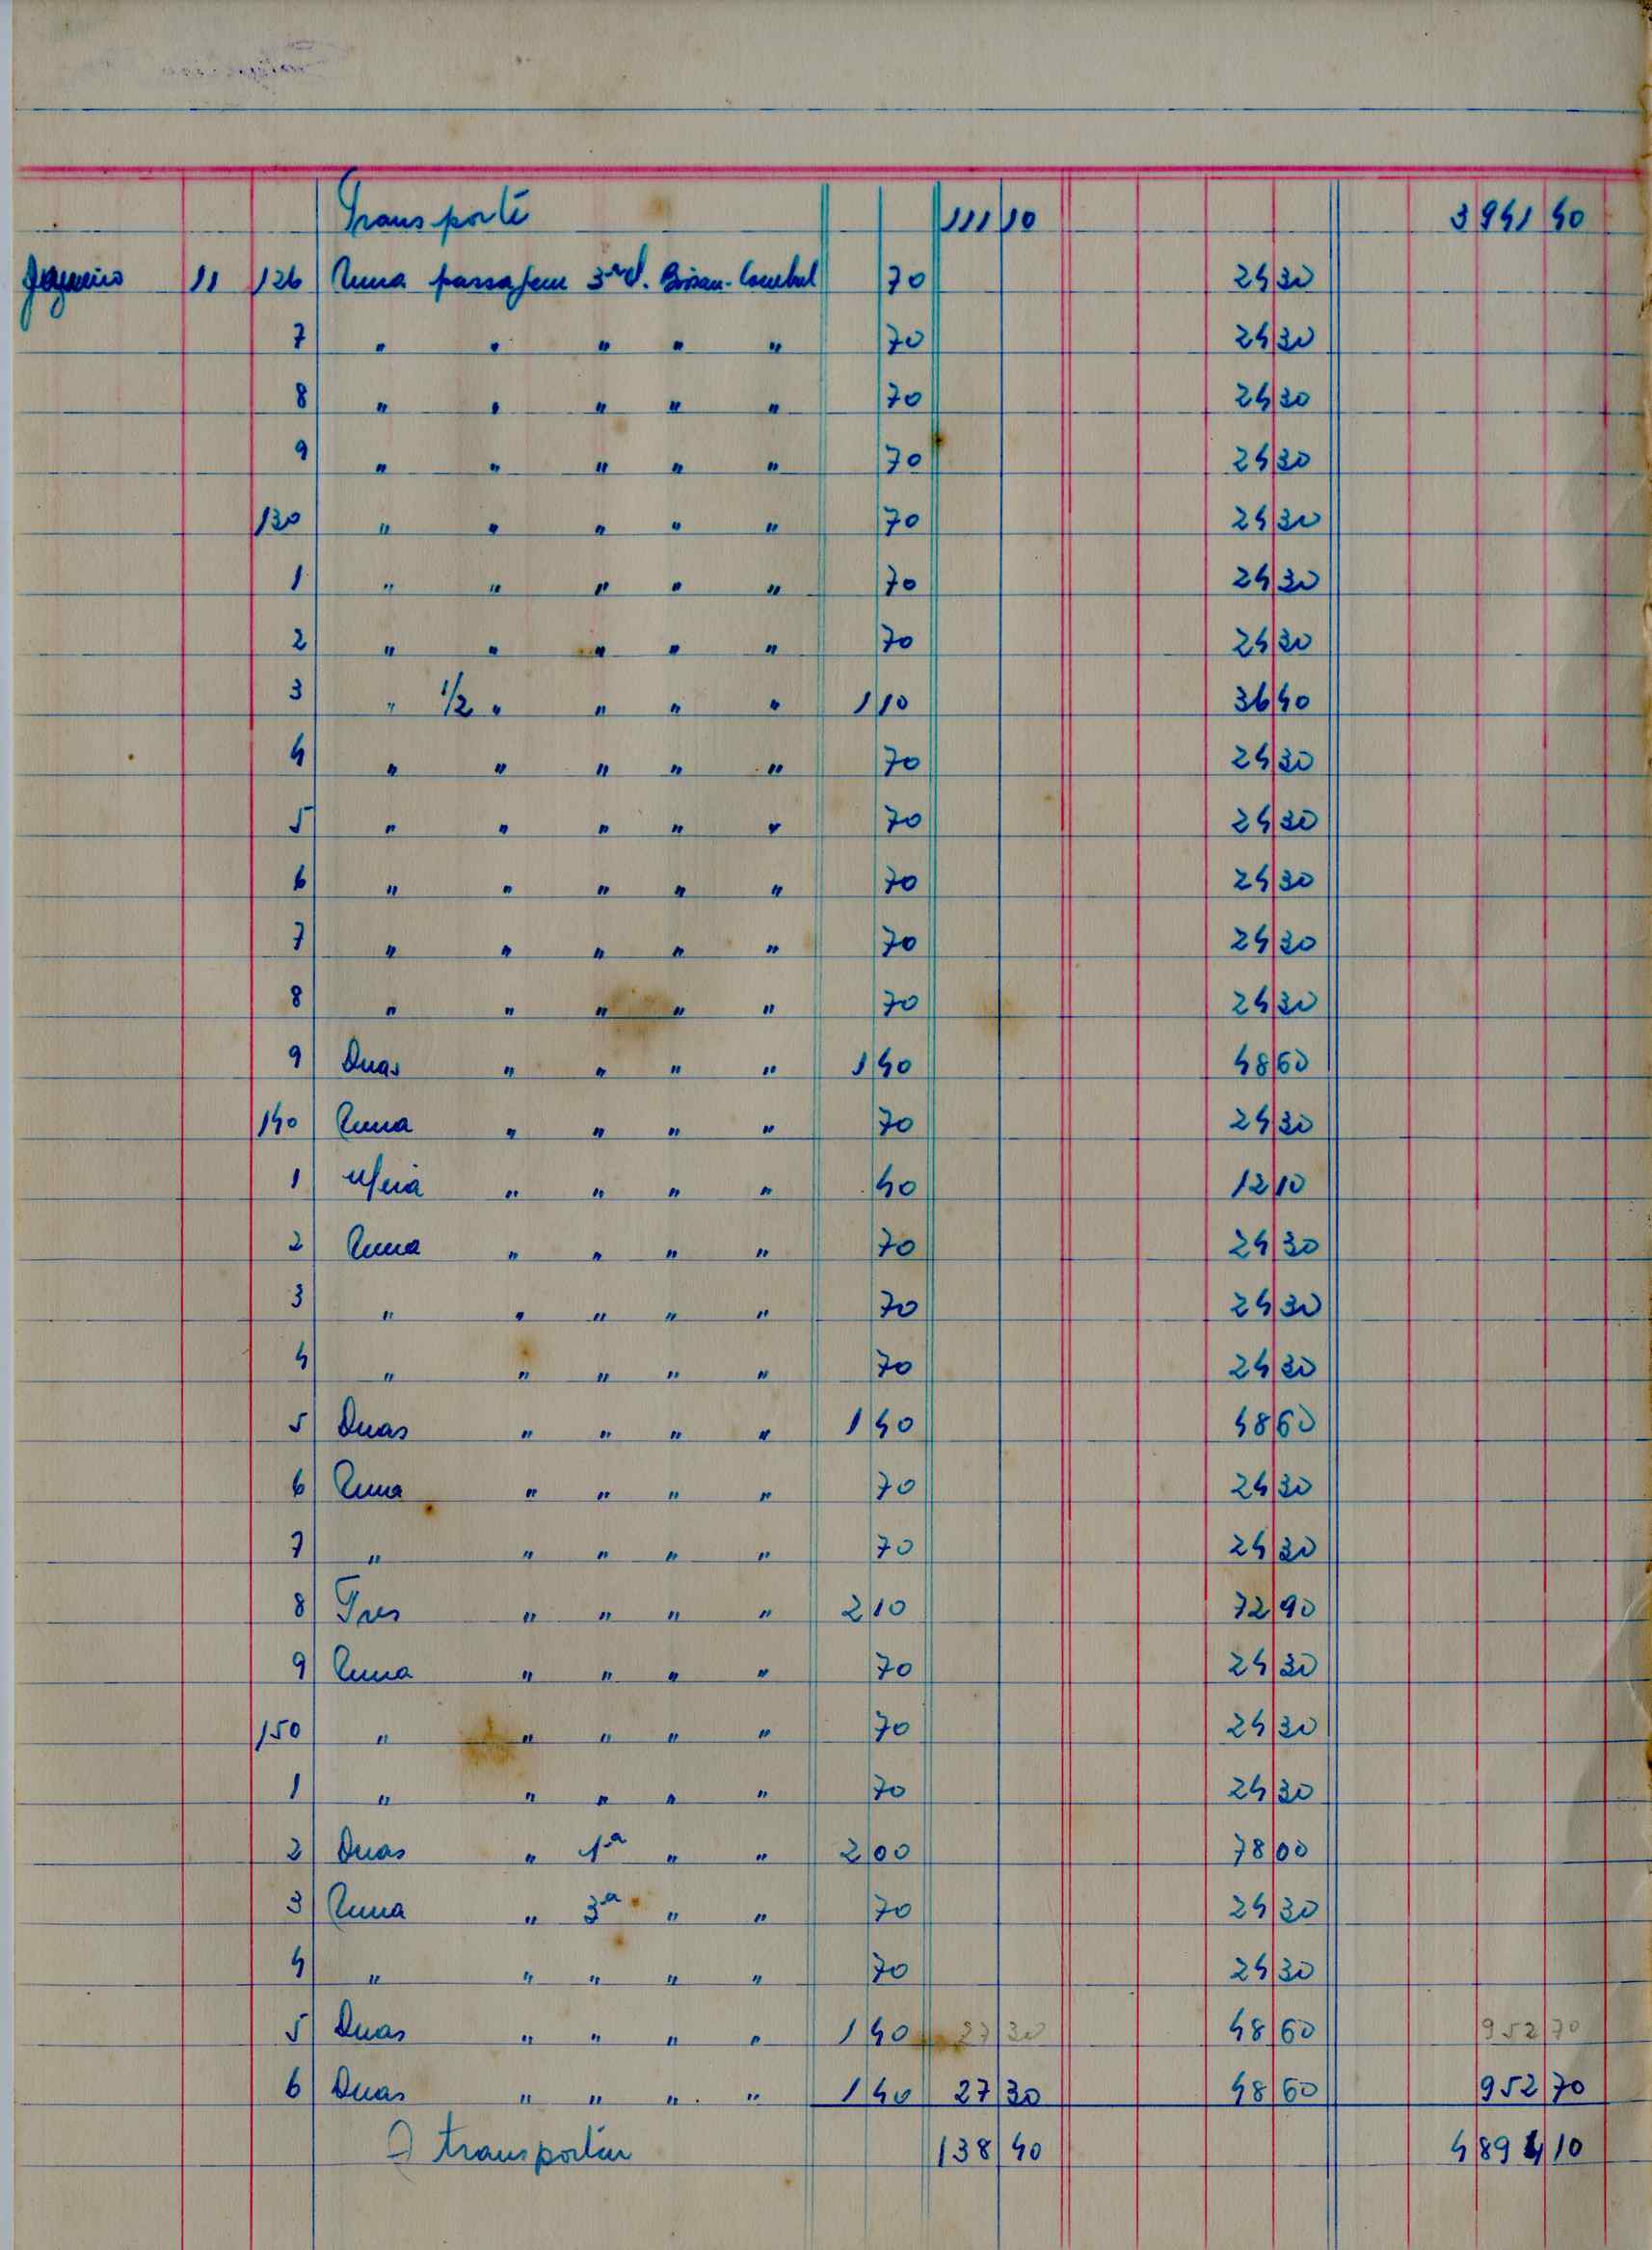 Transporte 111 10 3941 40
Janeiro 11 126 Uma passagem 3ª cl. Bissau- 70 24 30
7 " " " " " 70 24 30
8 " " " " " 70 24 30
9 " " " " " 70 24 30
130 " " " " " 70 24 30
1 " " " " " 70 24 30
2 " " " " " 70 24 30
3 " 1/2 " " " " 1 10 36 40
4 " " " " " 70 24 30
5 " " " " " 70 24 30
6 " " " " " 70 24 30
7 " " " " " 70 24 30
8 " " " " " 70 24 30
9 Duas " " " " 1 40 48 60
140 Uma " " " " 70 24 30
1 Meia " " " " 40 12 10
2 Uma " " " " 70 24 30
3 " " " " " 70 24 30
4 " " " " " 70 24 30
5 Duas " " " " 1 40 48 60
6 Uma " " " " 70 24 30
7 " " " " " 70 24 30
8 Tres " " " " 2 10 72 90
9 Uma " " " " 70 24 30
150 " " " " " 70 24 30
1 " " " " " 70 24 30
2 Duas " 1ª " " 2 00 78 00
3 Uma " 3ª " " 70 24 30
4 " " " " " 70 24 30
5 Duas " " " " 1 40 27 30 48 60 952 70
6 Duas " " " " 1 40 27 30 48 60 952 70
A transportar 138 40 4894 10